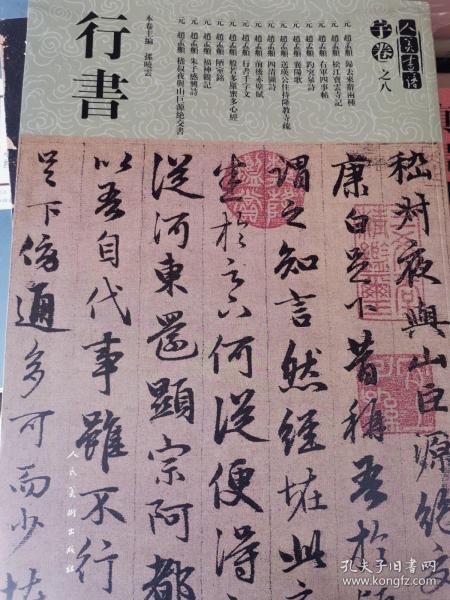 人美書譜
宇卷 之八
元 趙孟頫 歸去來辭兩種
元 趙孟頫 松江寶雲寺記
元 趙孟頫 右軍四事帖
元 趙孟頫 趵突泉詩
元 趙孟頫 襄陽歌
元 趙孟頫 送瑛公住持隆教寺疏
元 趙孟頫 四清圖詩
元 趙孟頫 前後赤壁賦
元 趙孟頫 行書千字文
元 趙孟頫 般若波羅蜜多心經
元 趙孟頫 陋室銘
元 趙孟頫 福神觀記
元 趙孟頫 朱子感興詩
元 趙孟頫 嵇叔夜與山巨源絕交書
本卷主編 孫曉雲
行書
嵇對夜與山巨源絕交
康白足下昔稱吾於
謂之知言然經怪此
生於之六何從便得
從河東還顯宗阿都
以吾自代事雖不行
足下傍通多可而少怪
人民美術出版社
孔夫子旧書网